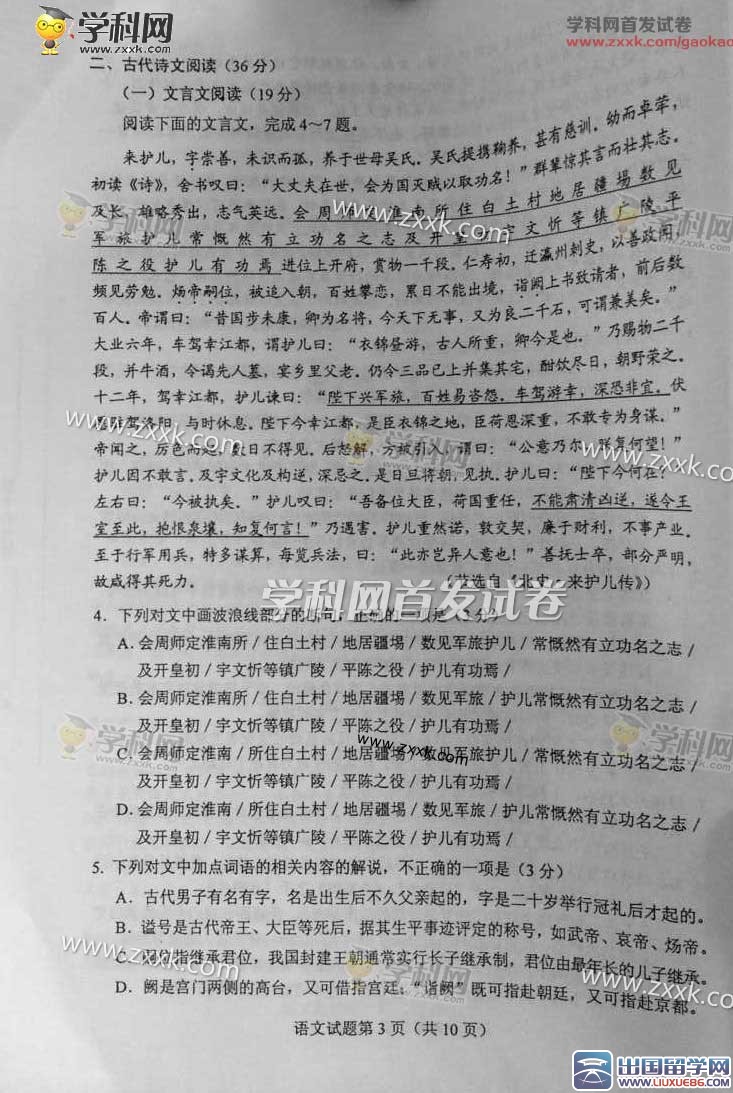 学科网
www.zxxk.com
学科网首发试卷
www.zxxk.com/gaokao
二、古代诗文阅读（36分）
（一）文言文阅读（19分）
阅读下面的文言文，完成4～7题。
来护儿，字崇善，未识而孤，养于世母吴氏。吴氏提携鞠养，甚有慈训。幼而卓荦，
初读《诗》，舍书叹曰：“大丈夫在世，会为国灭贼以取功名！”群辈惊其言而壮其志。
及长，雄略秀出，志气英远。会周师定淮南所住白土村地居疆埸数见
军旅护儿常慨然有立功名之志及开皇初宇文忻等镇广陵平
陈之役护儿有功焉 进位上开府，赏物一千段。仁寿初，迁瀛州刺史，以善政闻，
频见劳勉。炀帝嗣位，被追入朝，百姓攀恋，累日不能出境，诣阙上书致请者，前后数
百人。帝谓曰：“昔国步未康，卿为名将，今天下无事，又为良二千石，可谓兼美矣。”
大业六年，车驾幸江都，谓护儿曰：“衣锦昼游，古人所重，卿今是也。”乃赐物二千
段，并牛酒，令谒先人墓，宴乡里父老。仍令三品已上并集其宅，酣饮尽日，朝野荣之。
十二年，驾幸江都，护儿谏曰：“陛下兴军旅，百姓易咨怨。车驾游幸，深恐非宜。伏
愿驻驾洛阳，与时休息。陛下今幸江都，是臣衣锦之地，臣荷恩深重，不敢专为身谋。”
帝闻之，厉色而起，数日不得见。后怒解，方被引入，谓曰：“公意乃尔，朕复何望！”
护儿因不敢言。及宇文化及构逆，深忌之。是日旦将朝，见执。护儿曰：“陛下今何在？”
左右曰：“今被执矣。”护儿叹曰：“吾备位大臣，荷国重任，不能肃清凶逆，遂令王
室至此，抱恨泉壤，知复何言！”乃遇害。护儿重然诺，敦交契，廉于财利，不事产业。
至于行军用兵，特多谋算，每览兵法，曰：“此亦岂异人意也！”善抚士卒，部分严明，
故咸得其死力。
（节选自《北史·来护儿传》）
学科网首发试卷
4. 下列对文中画波浪线部分的断句，正确的一项是（3分）
A. 会周师定淮南所 / 住白土村 / 地居疆埸 / 数见军旅护儿 / 常慨然有立功名之志 /
及开皇初 / 宇文忻等镇广陵 / 平陈之役 / 护儿有功焉 /
B. 会周师定淮南所 / 住白土村 / 地居疆埸 / 数见军旅 / 护儿常慨然有立功名之志 /
及开皇初 / 宇文忻等镇广陵 / 平陈之役 / 护儿有功焉 /
C. 会周师定淮南 / 所住白土村 / 地居疆埸 / 数见军旅护儿 / 常慨然有立功名之志 /
及开皇初 / 宇文忻等镇广陵 / 平陈之役 / 护儿有功焉 /
D. 会周师定淮南 / 所住白土村 / 地居疆埸 / 数见军旅 / 护儿常慨然有立功名之志 /
及开皇初 / 宇文忻等镇广陵 / 平陈之役 / 护儿有功焉 /
5. 下列对文中加点词语的相关内容的解说，不正确的一项是（3分）
A. 古代男子有名有字，名是出生后不久父亲起的，字是二十岁举行冠礼后才起的。
B. 谥号是古代帝王、大臣等死后，据其生平事迹评定的称号，如武帝、哀帝、炀帝。
C. 嗣位指继承君位，我国封建王朝通常实行长子继承制，君位由最年长的儿子继承。
D. 阙是宫门两侧的高台，又可借指宫廷；“诣阙”既可指赴朝廷，又可指赴京都。
语文试题第 3 页（共 10 页）
出国留学网
www.LIUXUE86.com